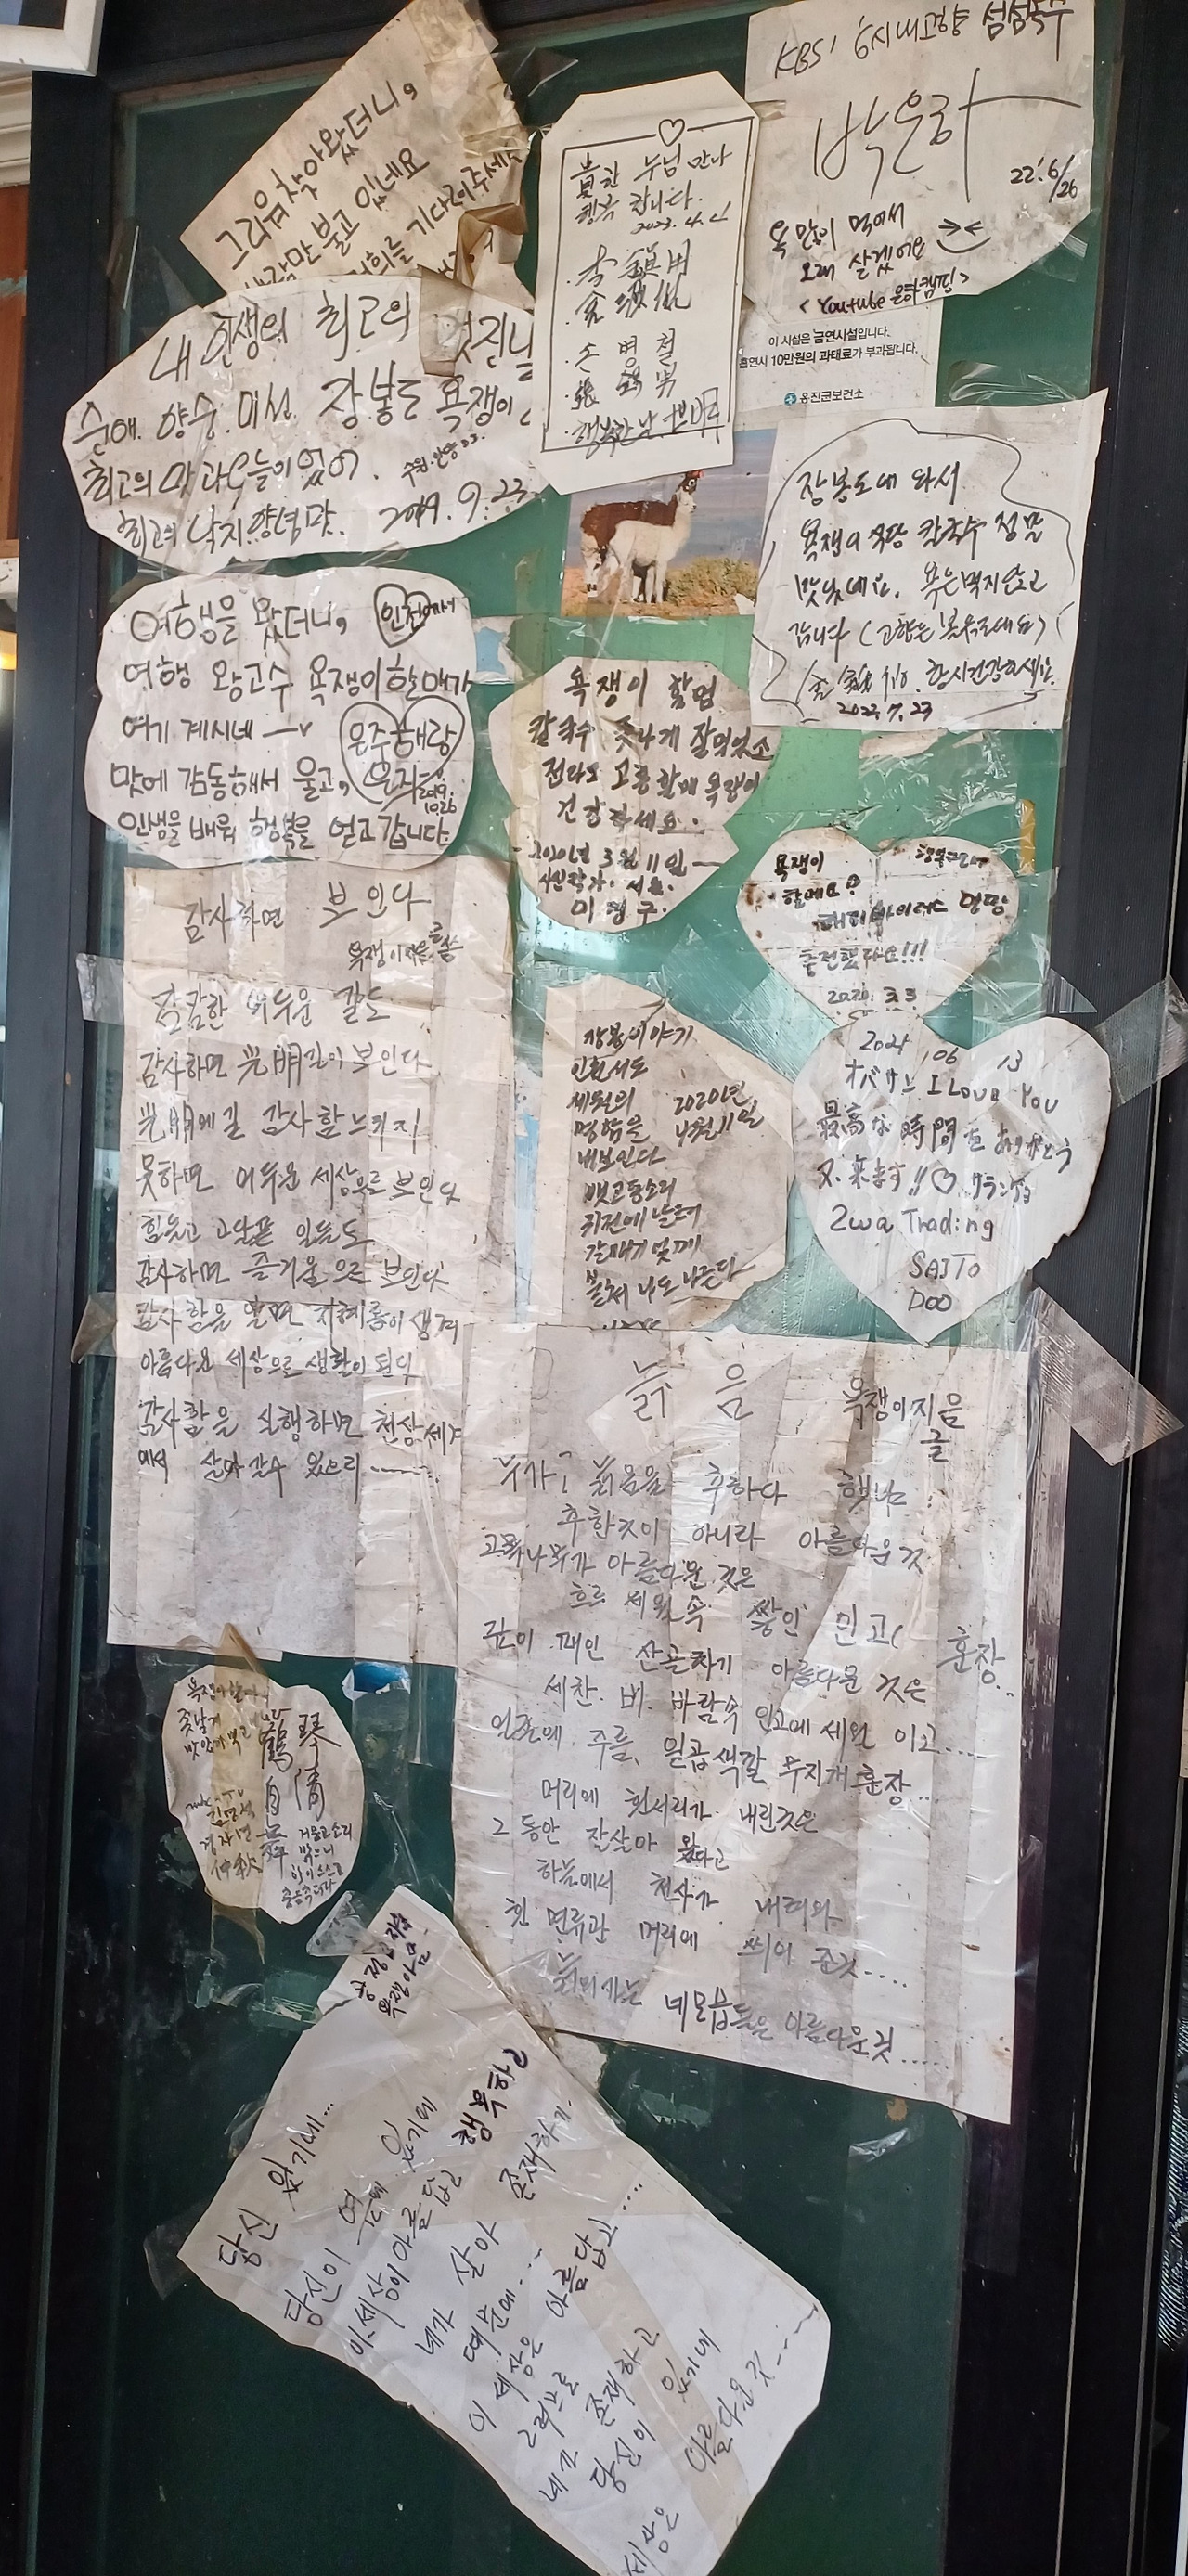 그리움 찾아왔더니,
바람만 불고 있네요
저희를 기다려주세요
KBS1 6시내고향 섬섬옥수
박은하
22.6/26
욕 많이 먹어서
오래 살겠어요
< Youtube 은하캠핑 >
이 시설은 금연시설입니다.
흡연시 10만원의 과태료가 부과됩니다.
옹진군보건소
누님 만나
행복 합니다.
2023. 4.
손 병 철
행복한 날
내 인생의 최고의 멋진날
순애. 향숙. 미선. 장봉도 욕쟁이
최고의 맛과 들이 있어.
최고의 낙지 양념맛. 2019. 9. 23.
장봉도에 와서
욕쟁이 식당 칼국수 정말
맛있네요. 욕은 먹지 않고
갑니다 (고향은 )
항시건강하세요.
2022. 7. 23
여행을 왔더니, 인천에서
여행 왕고수 욕쟁이할매가
여기 계시네 은주해랑
맛에 감동해서 울고, 2019.
인생을 배워 행복을 얻고갑니다. 10.26
욕쟁이 할멈
칼국수 좃나게 잘먹었소
전라도 고흥 할매 욕쟁이
건강하세요.
2020년 3월 11일
사진작가. 서울.
이 명 구.
욕쟁이
할매요?
해피바이러스 멍땅
충전했다요!!!
2020. 3. 3
감사하면 보인다
욕쟁이지음 글씀
캄캄한 어두운 길도
감사하면 光明길이 보인다
光明에길 감사할 느끼지
못하면 어두운 세상으로 보인다
힘들고 고달픈 일들도
감사하면 즐거움으로 보인다
감사함을 알면 지혜롬이 생겨
아름다운 세상으로 생활이 된다
감사함을 실행하면 천상세계
에서 살아갈수 있으리 ........
장봉이야기
인천서도
세월의 2020년
명함을 4월 11일
내보인다
뱃고동소리
귀전에 날려
갈매기 몇께
불쳐 나도 나른다
2021 06 13
オバサン I Love You
最高な時間をありがとう
又、来ます!!♡
2wa Trading
SAITO
DOO
늙 음 욕쟁이지음
글
누가? 늙음을 추하다 했나
추한것이 아니라 아름다운것
고목나무가 아름다운 것은
흐르 세월속 쌓인 인고( 훈장..
깊이 패인 산골짜기 아름다운 것은
세찬. 비. 바람속 인고에 세월 이고....
인간에 주름, 일곱색깔 무지개 훈장...
머리에 흰서리가 내린것은
그동안 잘살아 왔다고
하늘에서 천사가 내려와
흰 면류관 머리에 씌여 준것....
늙의가는 네모습들은 아름다운것.....
욕쟁이할매
좃날게
맛있게 먹고
鶴琴
自淸
거문고소리
당신 있기에...
당신이 옆에 있기에
이세상이 아름답고 행복하고
네가 살아 존재하기.
때문에...
이 세상은 아름답고....
그러므로
네가 존재하고
당신이 있기에
세상은 아름다운것.....